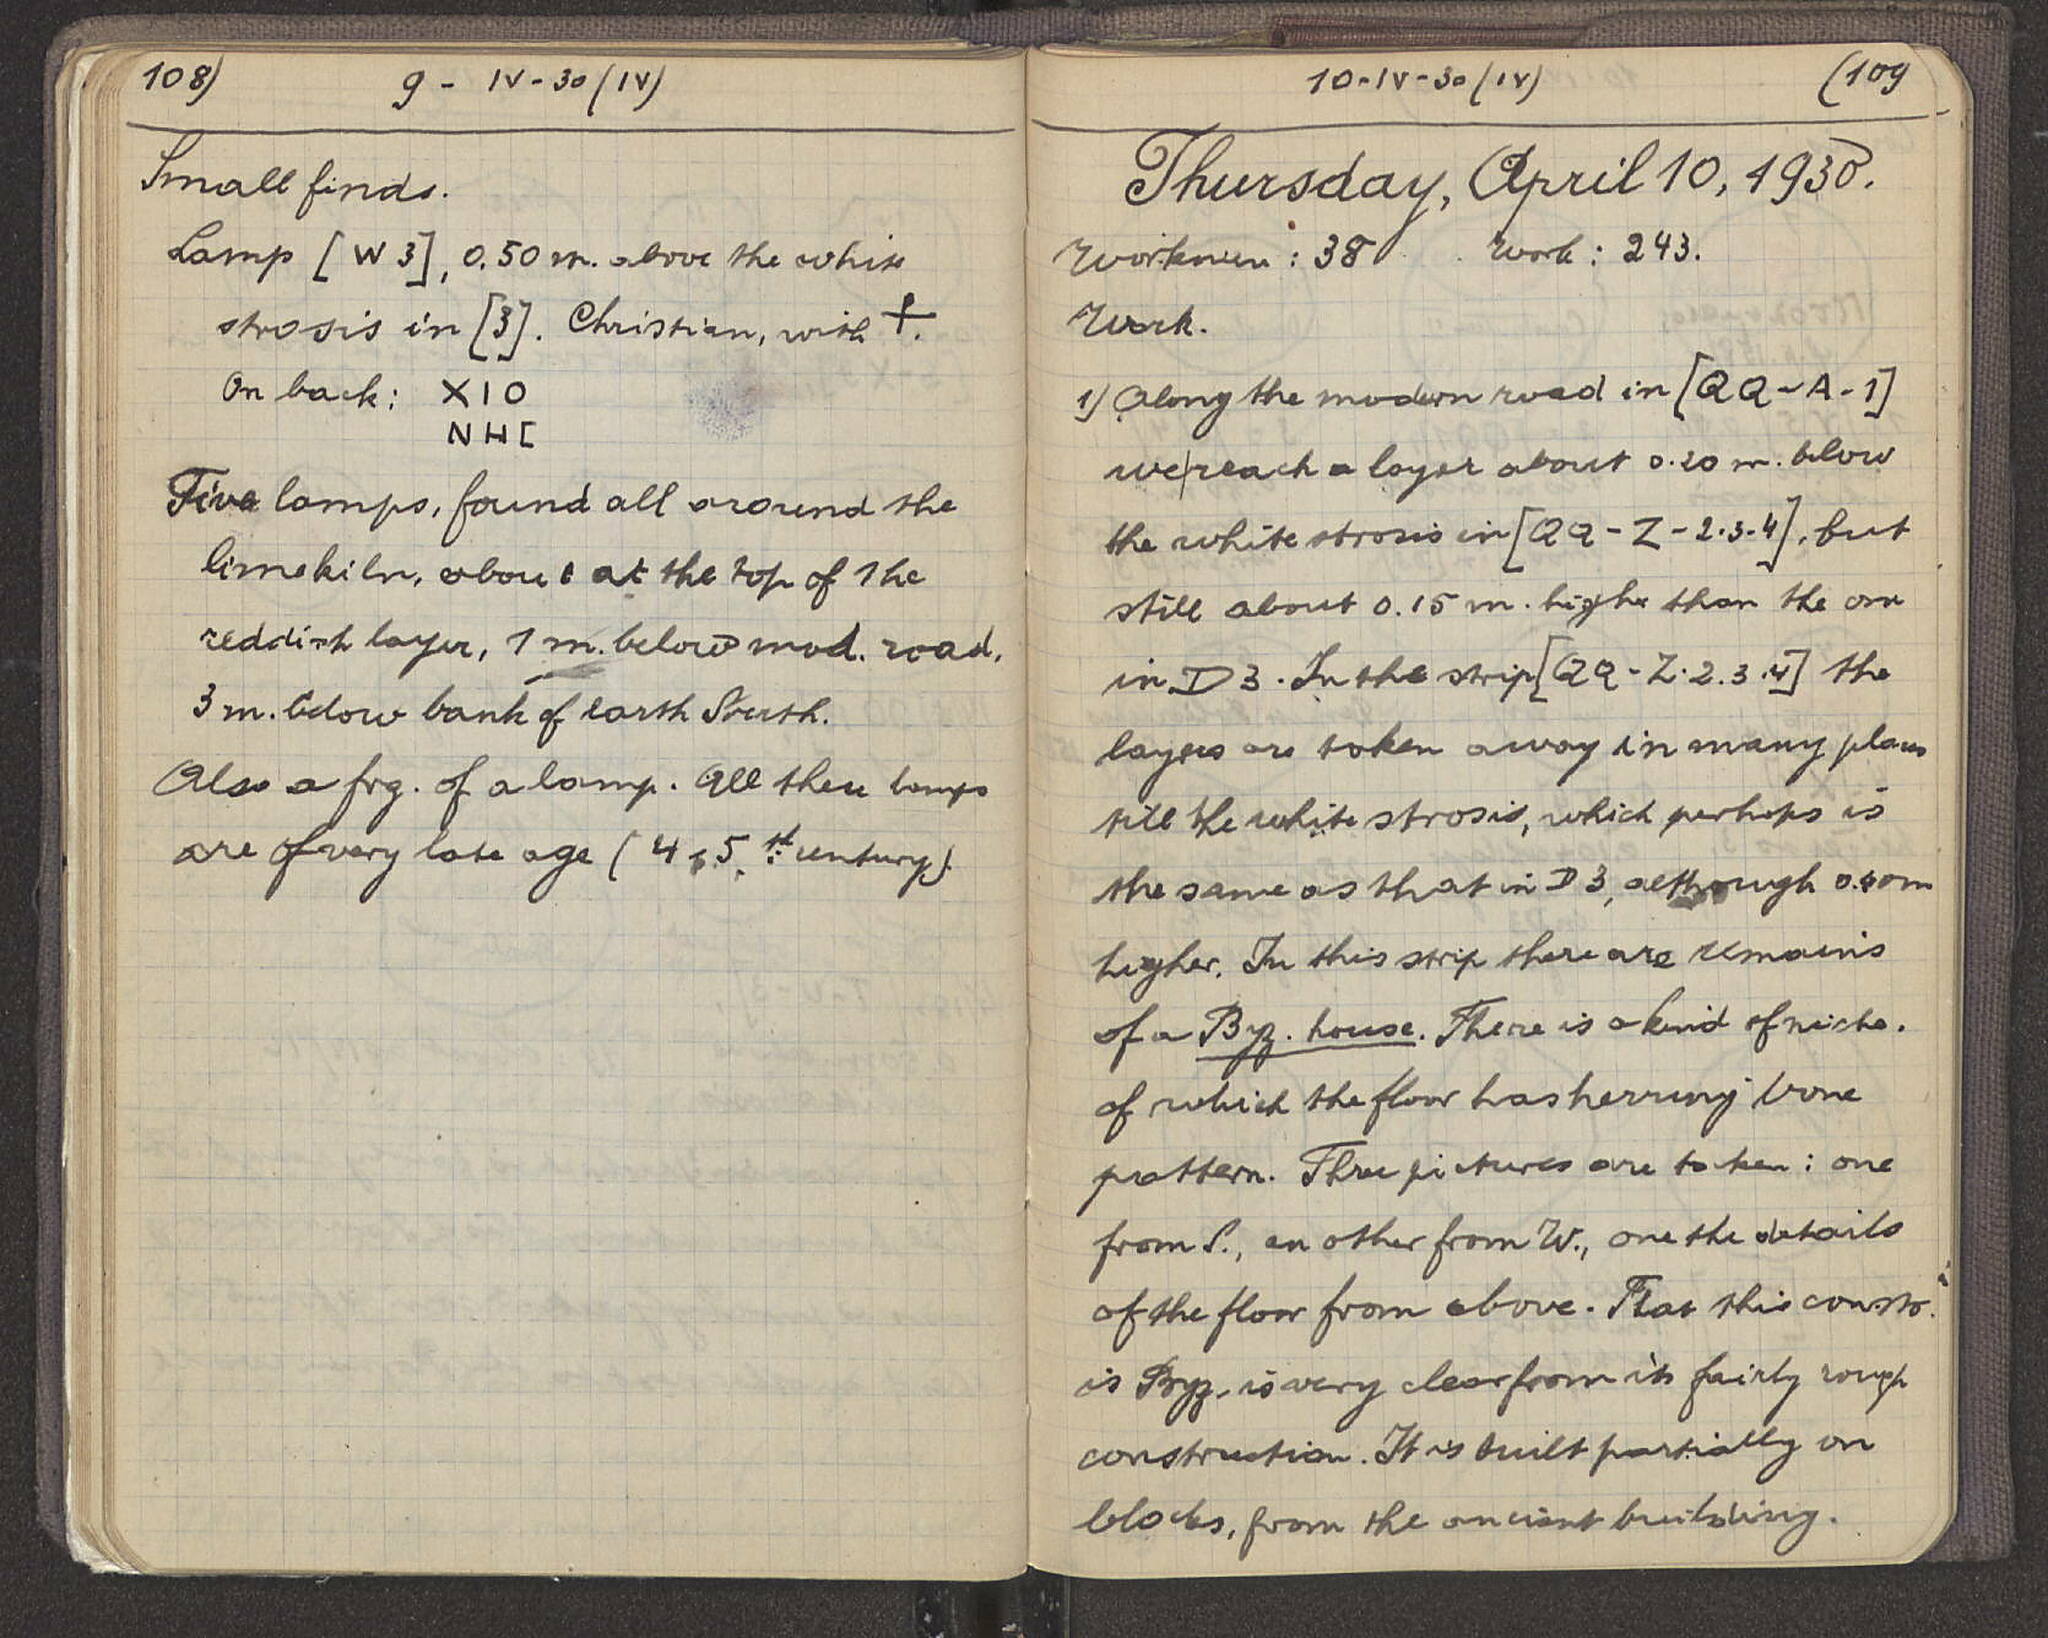 108)
9 - IV - 30 (IV)
Small finds.
Lamp [W 3], 0.50 m. above the white
strosis in [3]. Christian, with ⳨.
On back: X I O
N H [
Five lamps, found all around the
limekiln, about at the top of the
reddish layer, 1 m. below mod. road,
3 m. below bank of earth South.
Also a frg. of a lamp. All these lamps
are of very late age (4 5. th century).
10 - IV - 30 (IV)
(109
Thursday, April 10, 1930.
Workmen : 38 Work : 243.
Work.
1) Along the modern road in [QQ - A - 1]
we reach a layer about 0.20 m. below
the white strosis in [QQ - Z - 2.3.4], but
still about 0.15 m. higher than the one
in D 3. In the strip [QQ - Z. 2. 3. 4] the
layers are taken away in many places
till the white strosis, which perhaps is
the same as that in D 3, although m
higher. In this strip there are remains
of a Byz. house. There is a kind of niche.
of which the floor has herring bone
pattern. Three pictures are taken : one
from S., an other from W., one the details
of the floor from above. That this constr.
is Byz. is very clear from its fairly rough
construction. It is built partially on
blocks, from the ancient building.